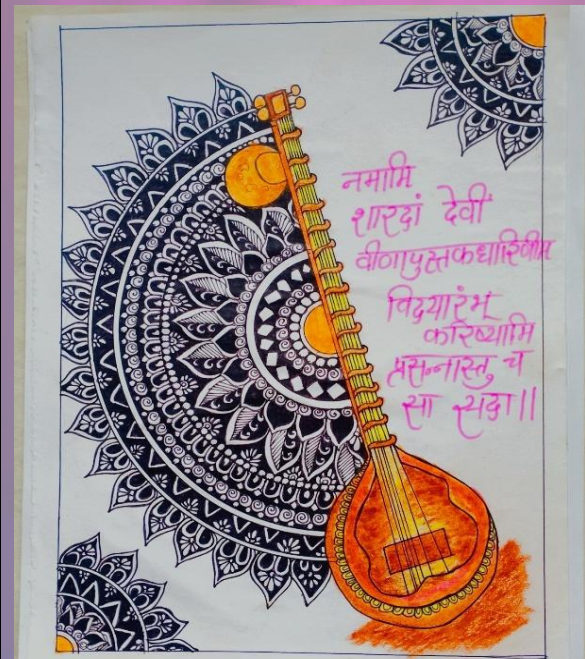 नमामि
शारदां देवीं
वीणापुस्तकधारिणीम
विदयारंभ्
करिष्यामि
प्रसन्नास्तु च
सा सदा।।